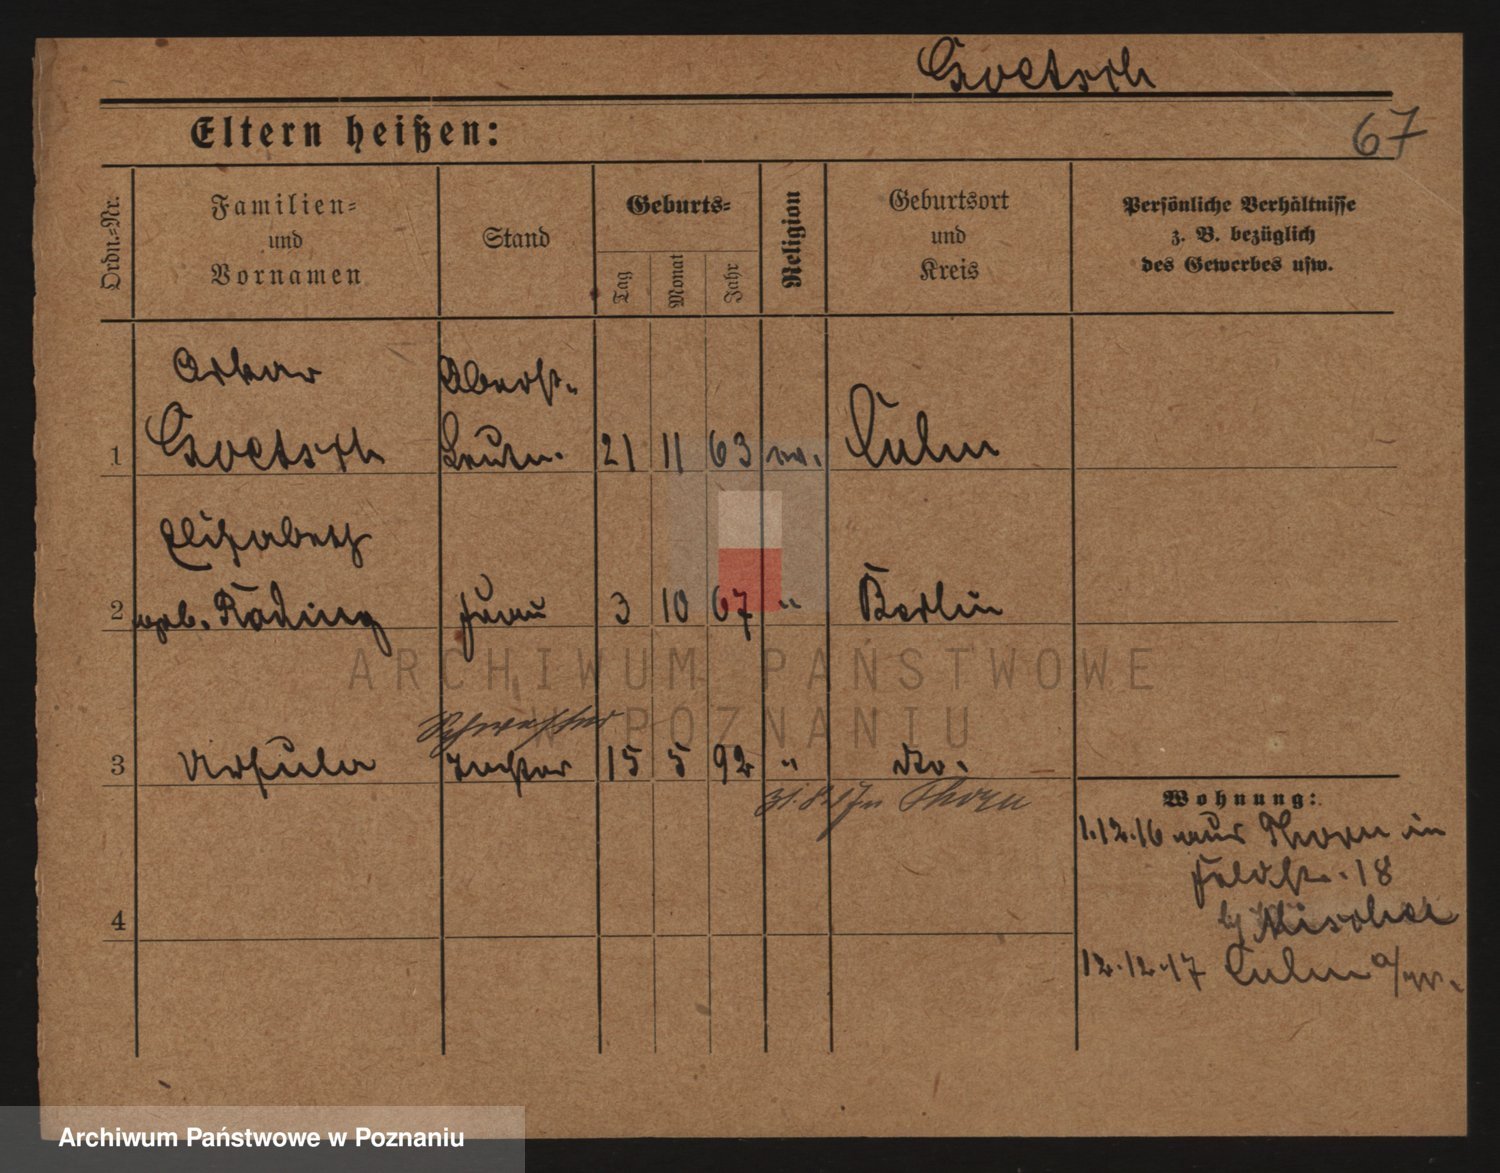 Goetsch
67
Eltern heißen:
Ordn.=Nr.
Familien=
und
Vornamen
Stand
Geburts=
Tag
Monat
Jahr
Religion
Geburtsort
und
Kreis
Persönliche Verhältnisse
z. B. bezüglich
des Gewerbes usw.
Oskar Oberst-
1 Goetsch Leutn. 21 11 63 ev. Culm
Elisabeth
2 geb. Räding Frau 3 10 67 " Berlin
Schwester
3 Ursula Tochter 15 5 92 " do.
in Thorn
Wohnung:
1.12.16 aus Thorn in
Feldstr. 18
4
bei
12.12.17 Culm a/W.
ARCHIWUM PAŃSTWOWE
W POZNANIU
Archiwum Państwowe w Poznaniu